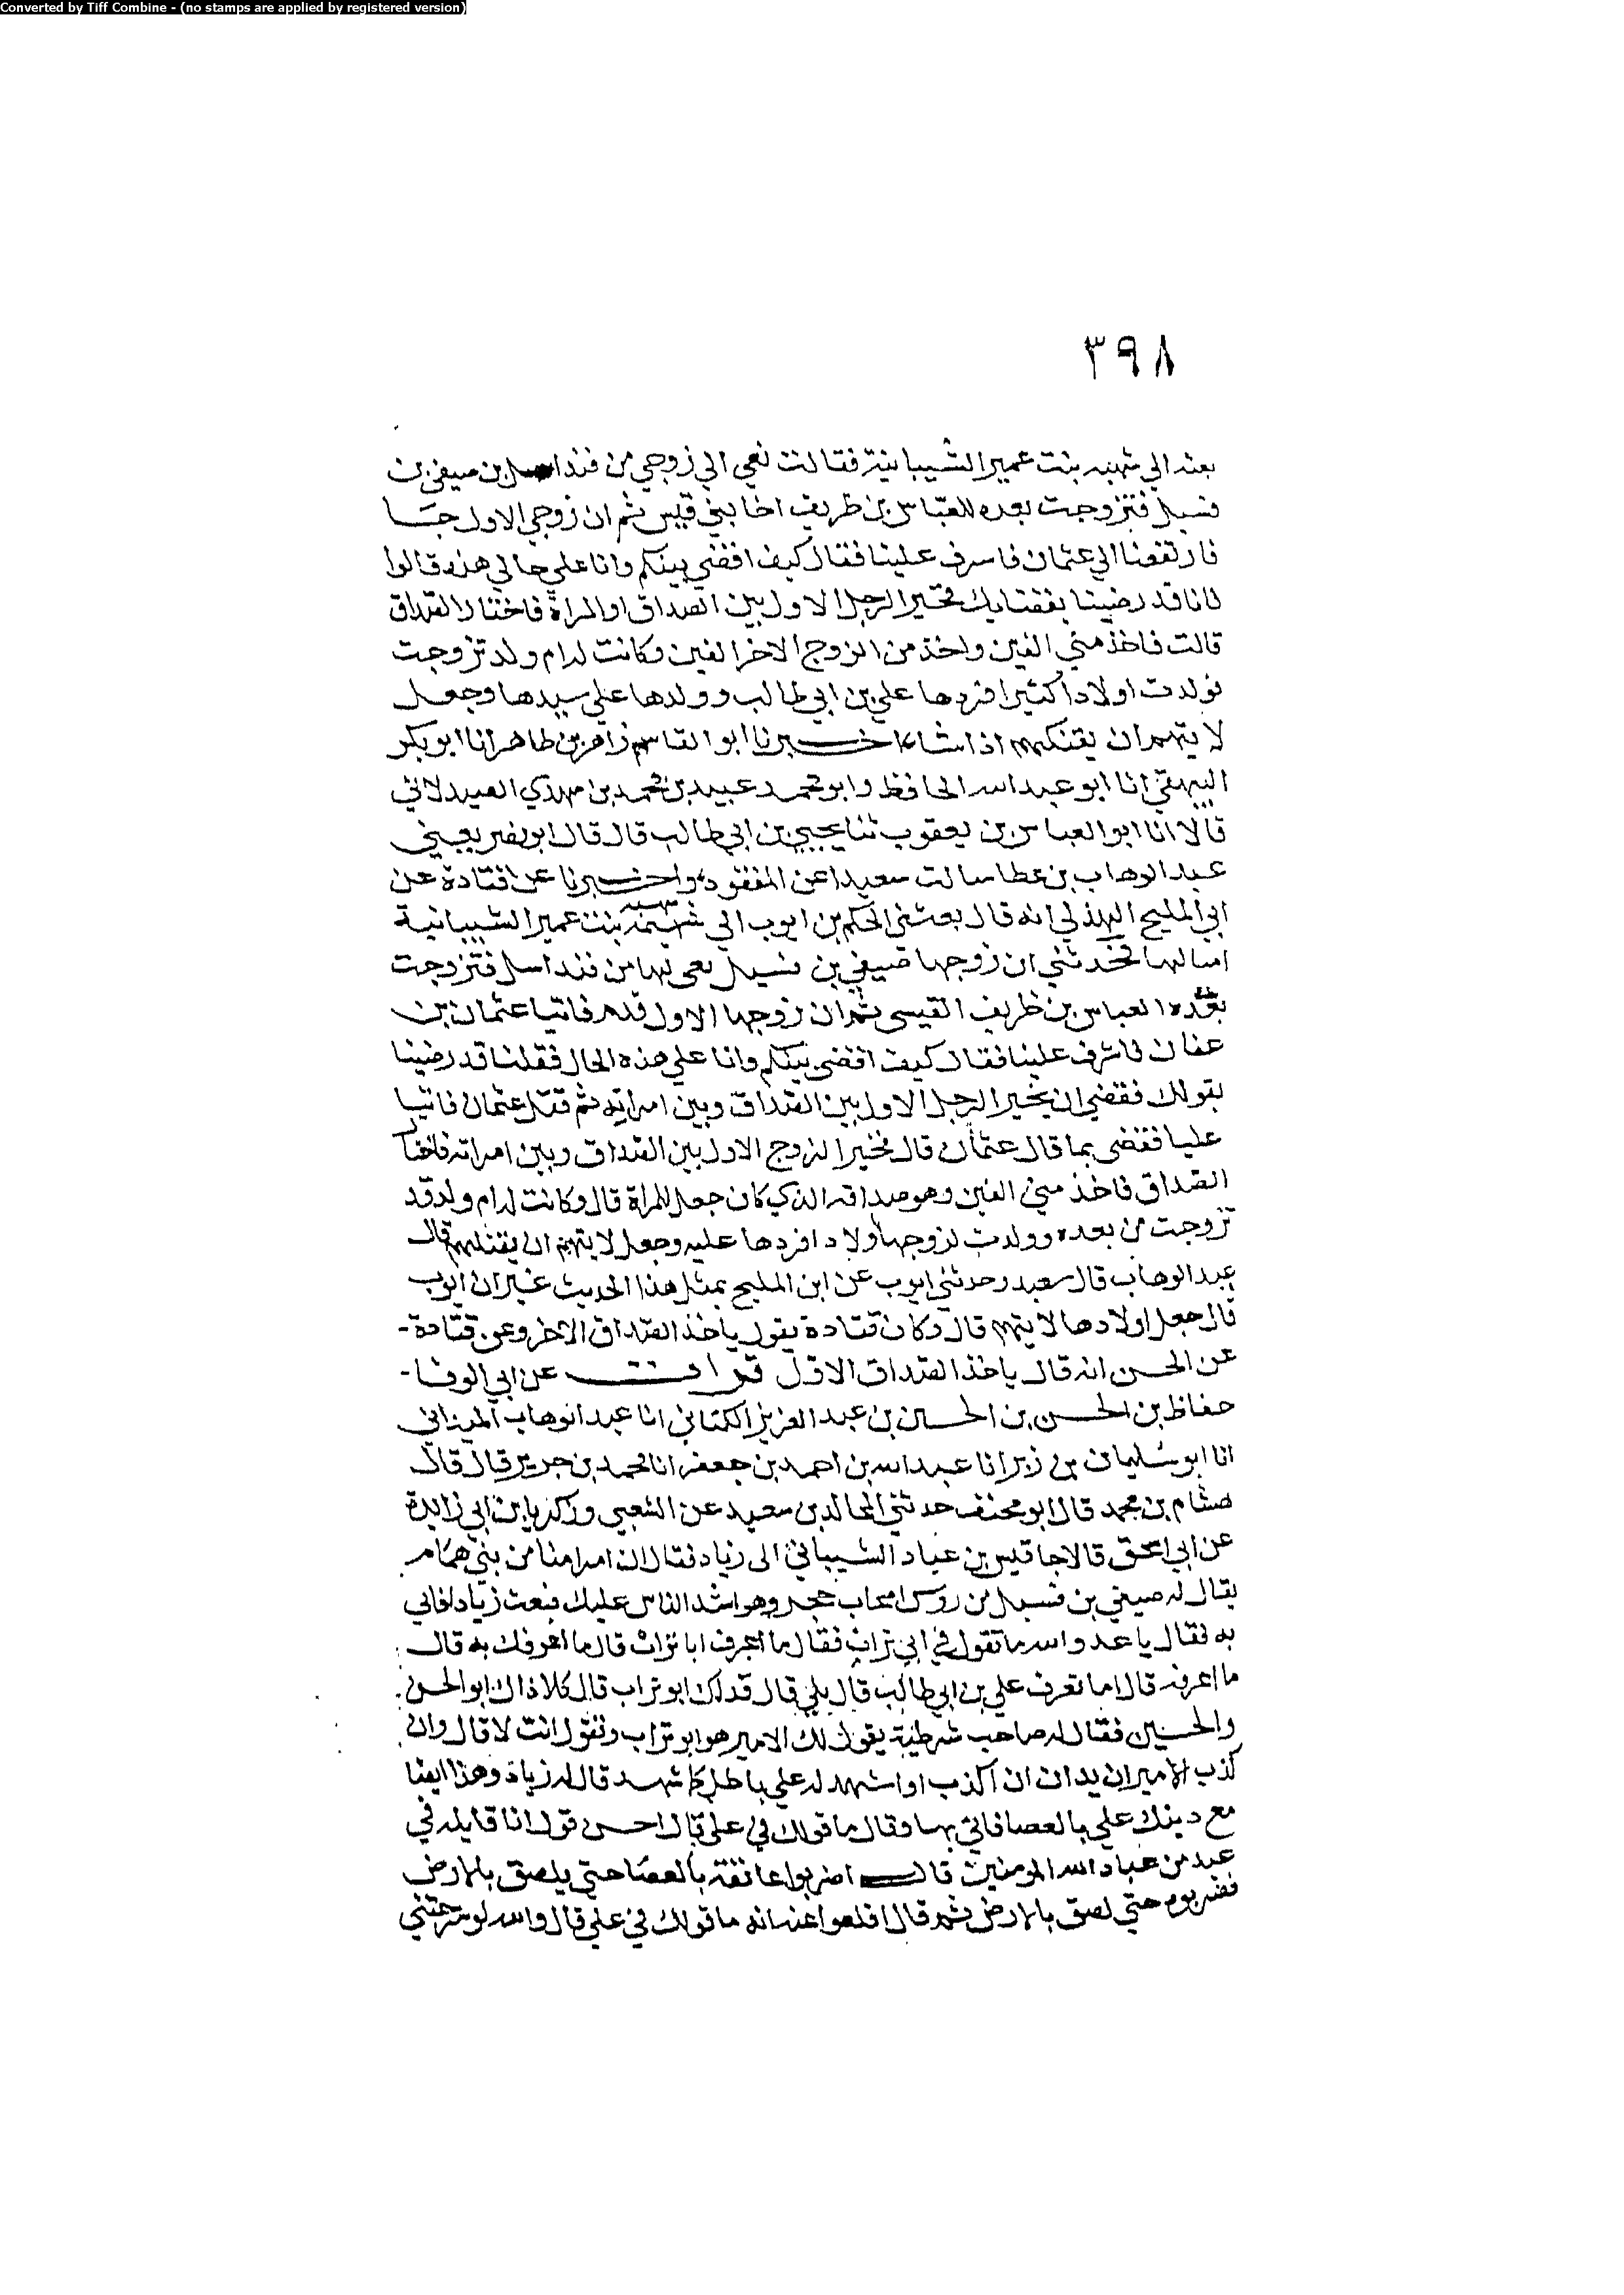 Converted by Tiff Combine - (no stamps are applied by registered version)
٣٩٨
بعثه الي شهيه بنت عمير الشيبانية فقالت نعي الي زوجي من قندابيل بن صيفي بن
فسيل فتزوجت بعده للعباس بن ظريف اخا بني قيس ثم ان زوجي الاول جا
فارتفعنا الي عثمان فاسرف علينا فقال كيف اقضي بينكم وانا علي حالي هذه قالوا
فانا قد رضينا بقضايك فخير الرجل الاول بين الصداق او المراة فاختار الصداق
قالت فاخذ مني الفين واخذ من الزوج الاخر الفين وكانت له ام ولد تزوجت
فولدت اولادا كثيرا فردها علي بن ابي طالب وولدها علي سيدها وجعل
لابيهم ان يفتكهم اذا شا خبرنا ابو القاسم زاهر بن طاهر انا ابو بكر
البيهقي انا ابو عبد الله الحافظ وابو محمد عبيد بن محمد بن مهدي الصيدلاني
قالا انا ابو العباس بن يعقوب ثنا يحيي بن ابي طالب قال قال ابو نصر يعني
عبد الوهاب بن عطا سالت سعيدا عن المفقود واخبرنا عن قتادة عن
ابي المليح الهذلي انه قال بعثني الحكم بن ايوب الي شهيمة بنت عمير الشيبانية
اسالها فحدثتني ان زوجها صيفي بن فسيل نعي لها من قندابيل فتزوجت
بعده العباس بن ظريف القيسي ثم ان زوجها الاول قدم فاتيا عثمان بن
عفان فاشرف علينا فقال كيف اقضي بينكم وانا علي هذه الحال فقلنا قد رضينا
بقولك فقضي ان يخير الرجل الاول بين الصداق وبين امراته ثم قتل عثمان فاتيا
عليا فقضي بما قال عثمان قال فخير الزوج الاول بين الصداق وبين امراته فاختار
الصداق فاخذ مني الفين وهو صداقه الذي كان جعل للمراة قال وكانت له ام ولد قد
تزوجت من بعده وولدت لزوجها اولادا فردها عليه وجعل لابيهم ان يفتكهم قال
عبد الوهاب قال سعيد وحدثني ايوب عن ابن المليح بمثل هذا الحديث غير ان ايوب
قال جعل اولادها لابيهم قال وكان قتادة يقول ياخذ الصداق الاخر وعن قتادة -
عن الحسن انه قال ياخذ الصداق الاول قرات عن ابي الوفا -
حفاظ بن الحسن بن الحسين بن عبد العزيز الكتاني انا عبد الوهاب الميداني
انا ابو سليمان بن زبر انا عبد الله بن احمد بن جعفر انا محمد بن جرير قال قال
هشام بن محمد قال ابو مخنف حدثني المجالد بن سعيد عن الشعبي وزكريا بن ابي زايدة
عن ابي اسحق قالا جا قيس بن عباد الشيباني الى زياد فقال ان امرا منا من بني همام
يقال له صيفي بن فسيل من روس اصحاب حجر وهو اشد الناس عليك فبعث زياد فاتي
به فقال يا عدو الله ما تقول في ابي تراب فقال ما اعرف ابا تراب قال ما اعرفك به قال
ما اعرفه قال اما تعرف علي بن ابي طالب قال بلي قال فذاك ابو تراب قال كلا ذاك ابو الحسن
والحسين فقال له صاحب شرطته يقول لك الامير هو ابو تراب وتقول انت لا قال وان
كذب الامير اتريد ان اكذب او اشهد له علي باطل كما شهد قال له زياد وهذا ايضا
مع دينك علي بالعصا فاتي بها وقال ما قولك في علي قال احسن قول انا قايله في
عبد من عباد الله المومنين قال اضربوا عاتقه بالعصا حتي يلصق بالارض
فضربوه حتي لصق بالارض ثم قال اقلعوا عنه انه ما قولك في علي قال والله لو شرحتني